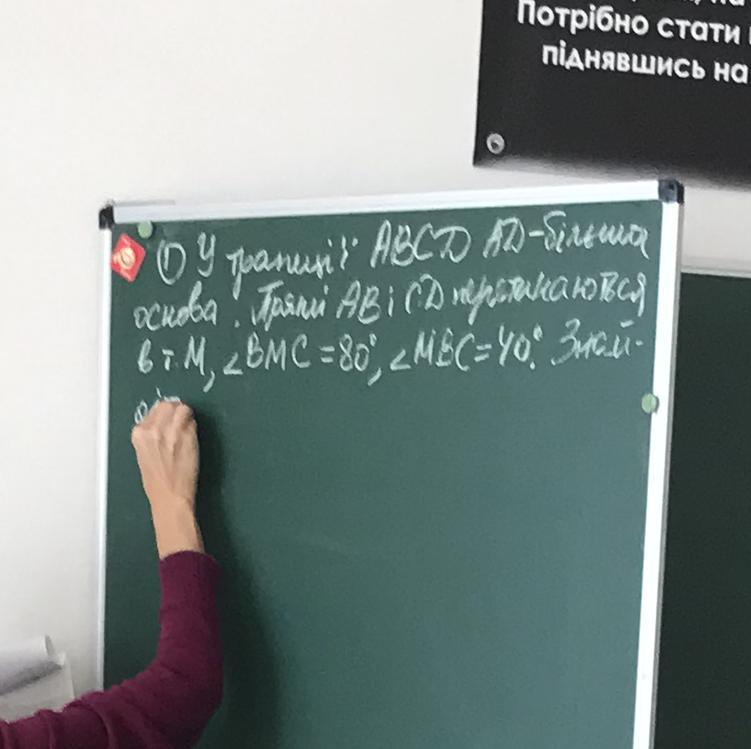 Потрібно стати
піднявшись на
① У трапеції ABCD AD-більша
основа. Прямі AB і CD перетинаються
в т. M, ∠BMC = 80°, ∠MBC = 40°. Знай-